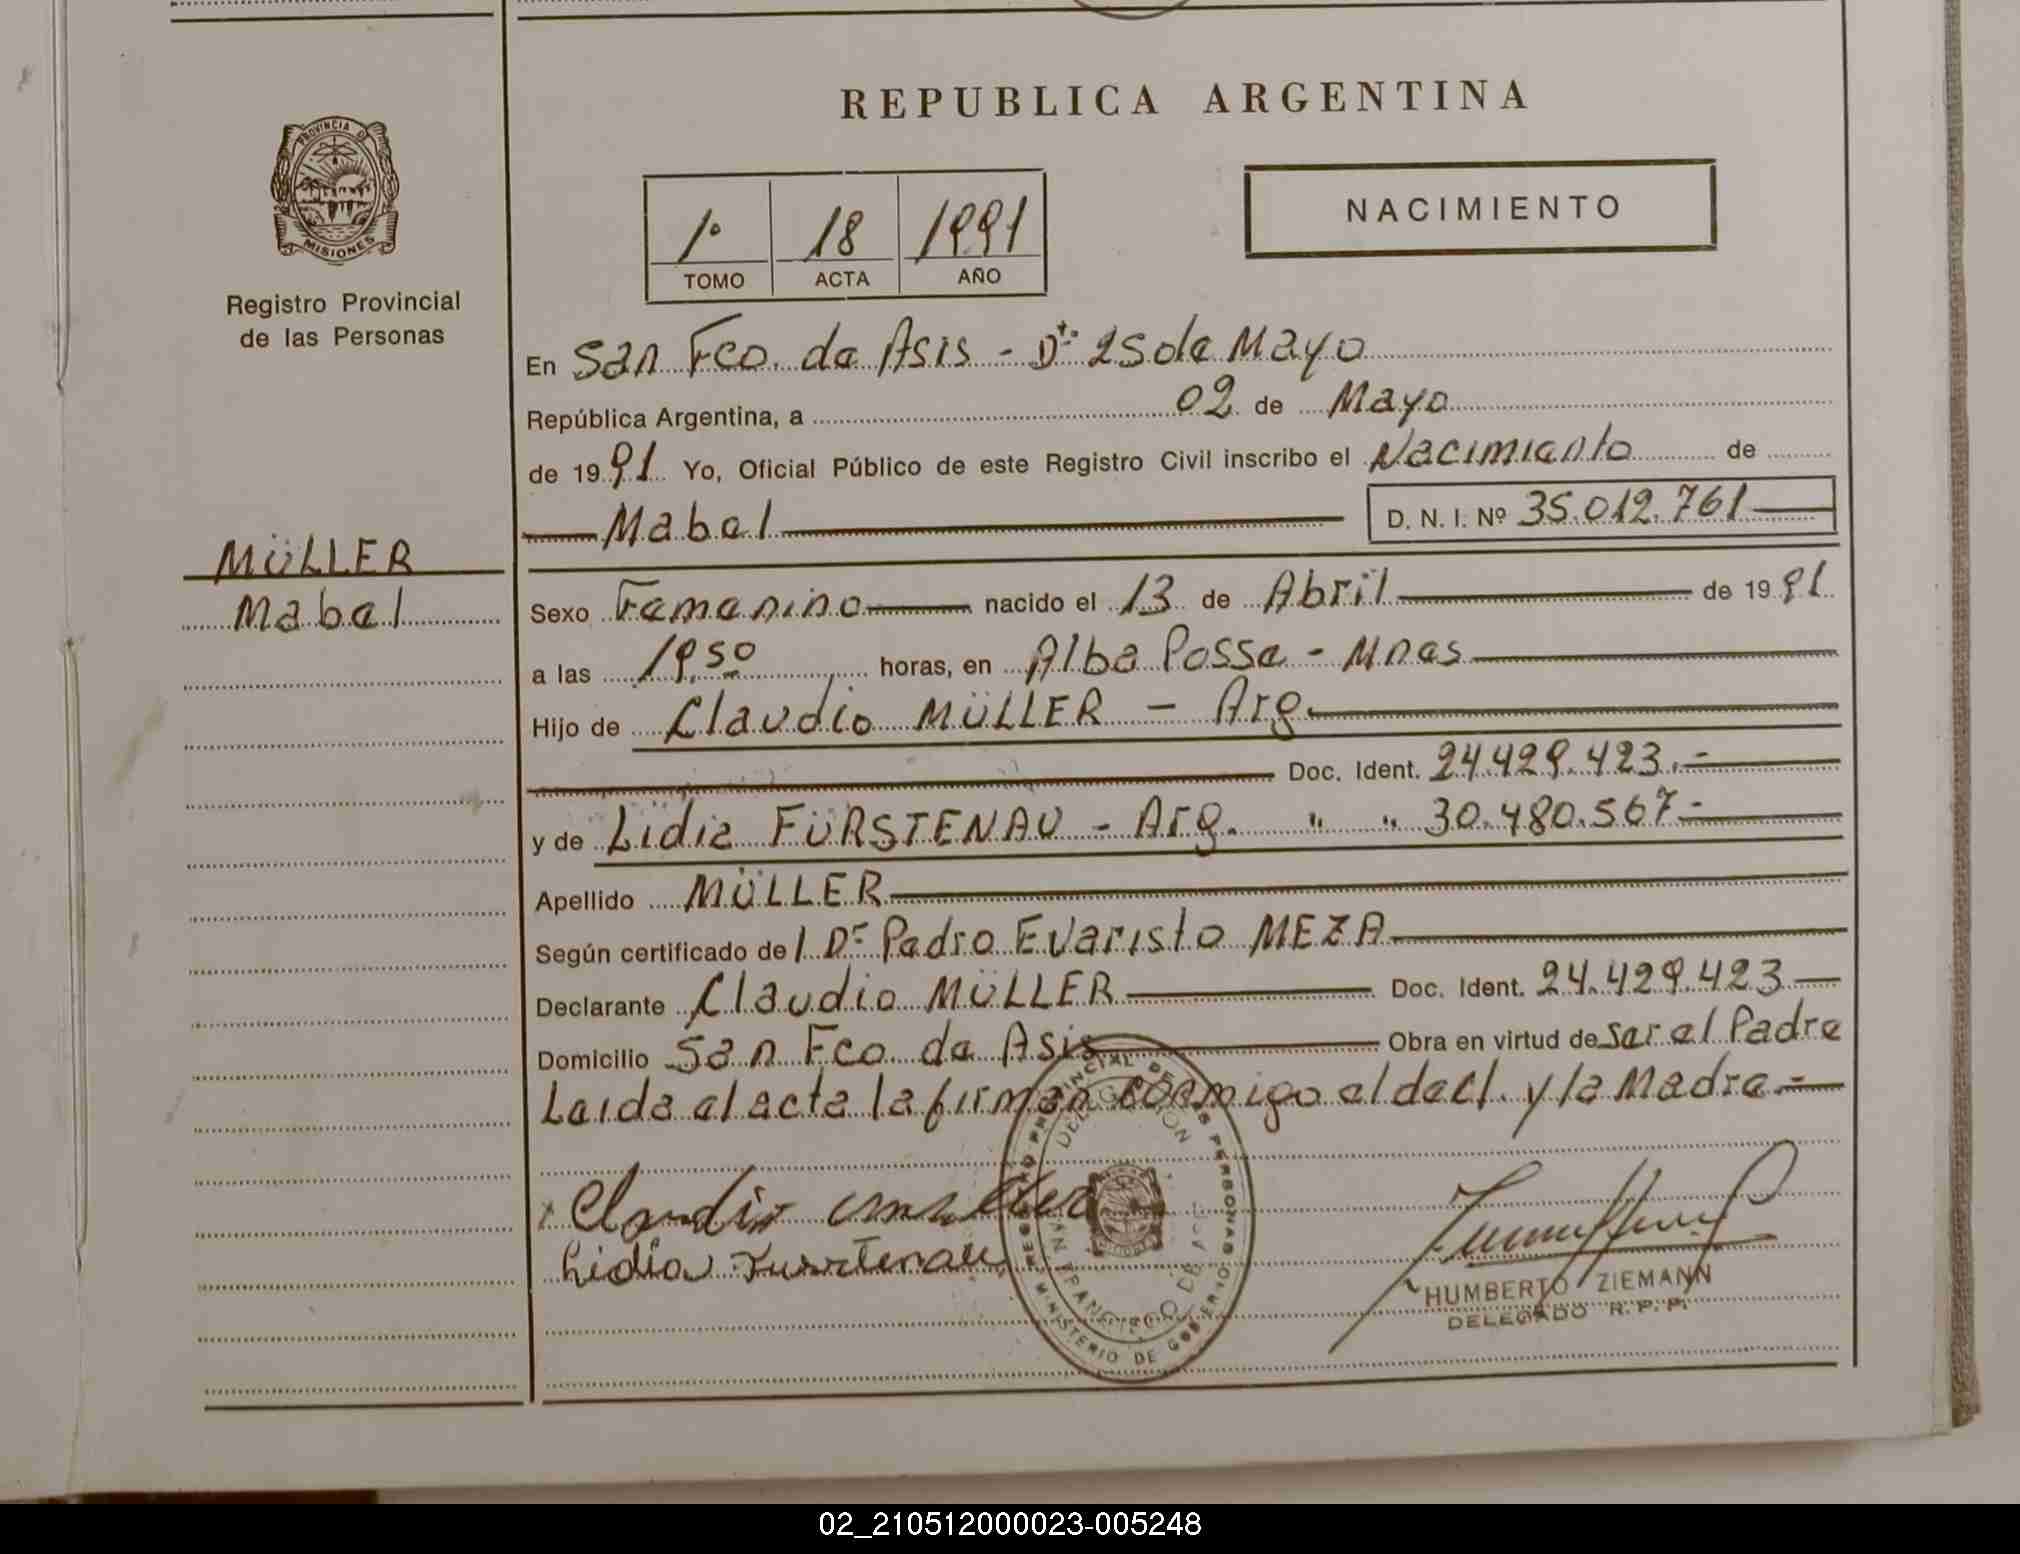 REPUBLICA ARGENTINA
PROVINCIA DE
MISIONES
Registro Provincial
de las Personas
1º 18 1991
TOMO ACTA AÑO
NACIMIENTO
En San Fco. de Asis - Dt. 25 de Mayo
República Argentina, a 02 de Mayo
de 1991 Yo, Oficial Público de este Registro Civil inscribo el Nacimiento de
Mabel D. N. I. Nº 35.012.761
MÜLLER
Mabel
Sexo Femenino nacido el 13 de Abril de 1991
a las 19,50 horas, en Alba Posse - Mnes
Hijo de Claudio MÜLLER - Arg.
Doc. Ident. 24.429.423.-
y de Lidia FÜRSTENAU - Arg. " " 30.480.567-
Apellido MÜLLER
Según certificado de l Dr Pedro Evaristo MEZA
Declarante Claudio MÜLLER Doc. Ident. 24.429.423
Domicilio San Fco. de Asis Obra en virtud de ser el Padre
Leida el acta la firman conmigo el decl. y la Madre.-
Claudio
Lidia Furstenau
REGISTRO PROVINCIAL DE LAS PERSONAS
MINISTERIO DE GOBIERNO
DELEGACION
SAN FRANCISCO DE ASIS
HUMBERTO ZIEMANN
DELEGADO R. P. P.
02_210512000023-005248